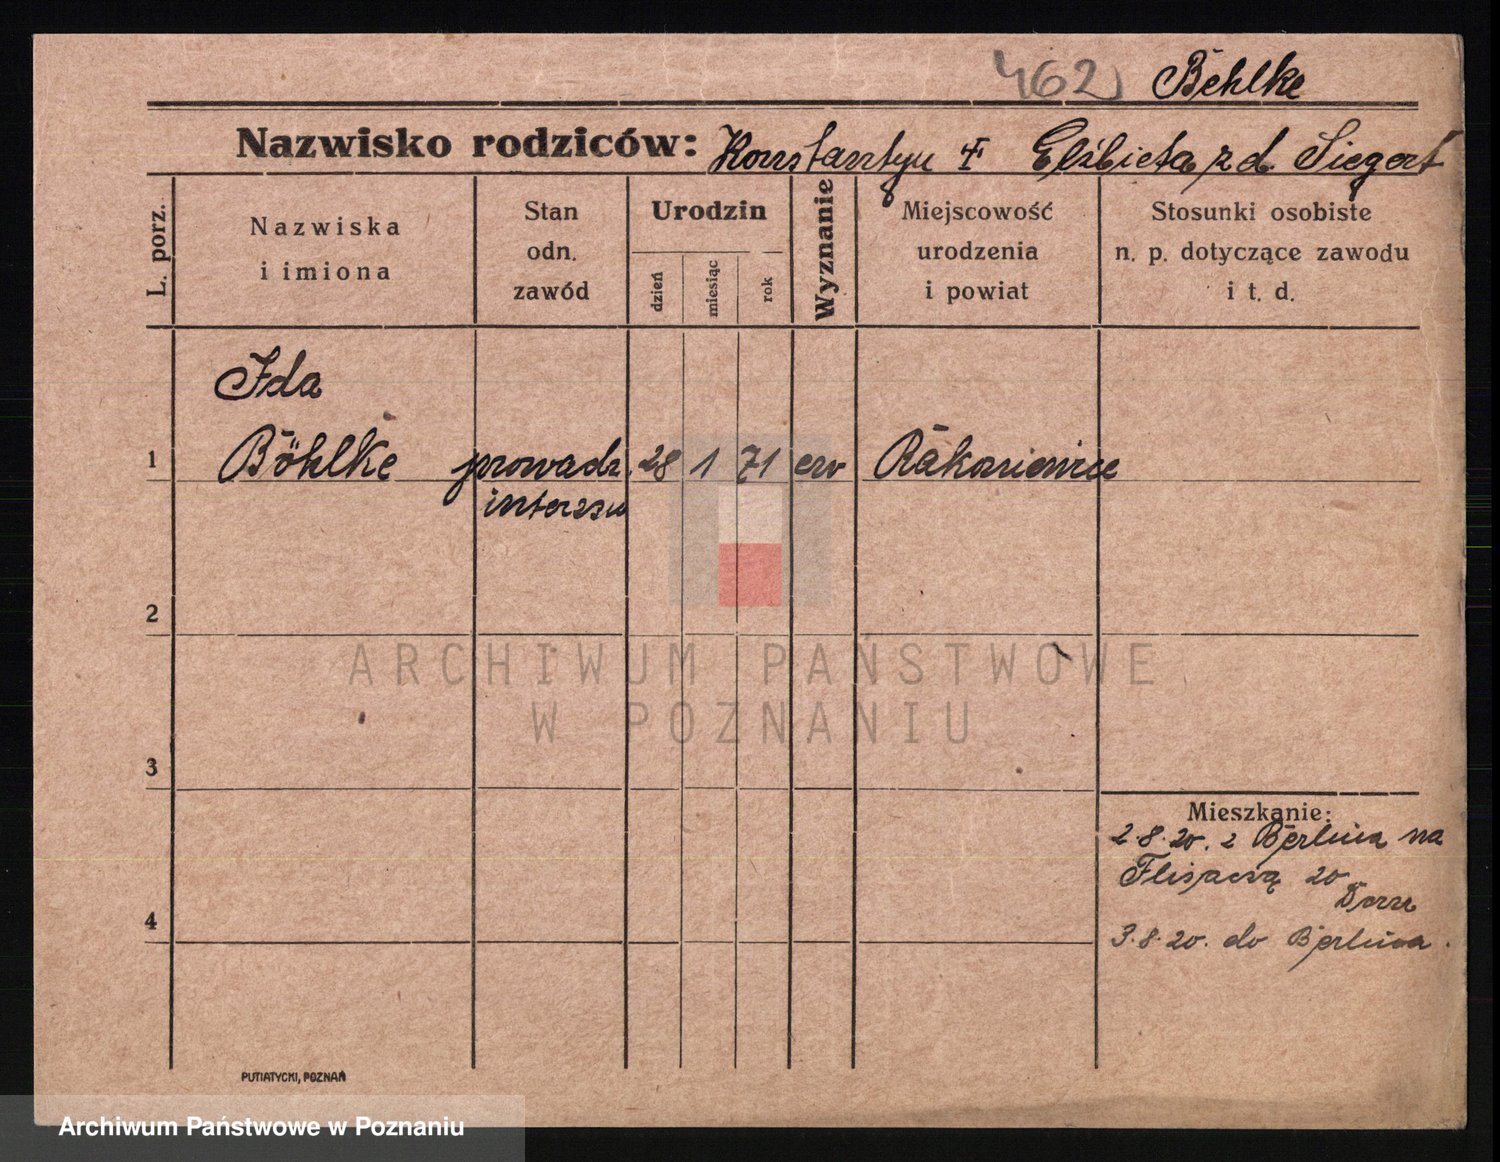 462 Behlke
Nazwisko rodziców: Konstantyn i Elżbieta z d. Siegert
L. porz.
Nazwiska
i imiona
Stan
odn.
zawód
Urodzin
dzień
miesiąc
rok
Wyznanie
Miejscowość
urodzenia
i powiat
Stosunki osobiste
n. p. dotyczące zawodu
i t. d.
Ida
1 Böhlke prowadz. 28 1 71 ew Rakoniewice
interesu
2
3
4
Mieszkanie:
2.8.20. z Berlina na
Flisacką 20
3.8.20. do Berlina.
PUTIATYCKI, POZNAŃ
ARCHIWUM PAŃSTWOWE
W POZNANIU
Archiwum Państwowe w Poznaniu